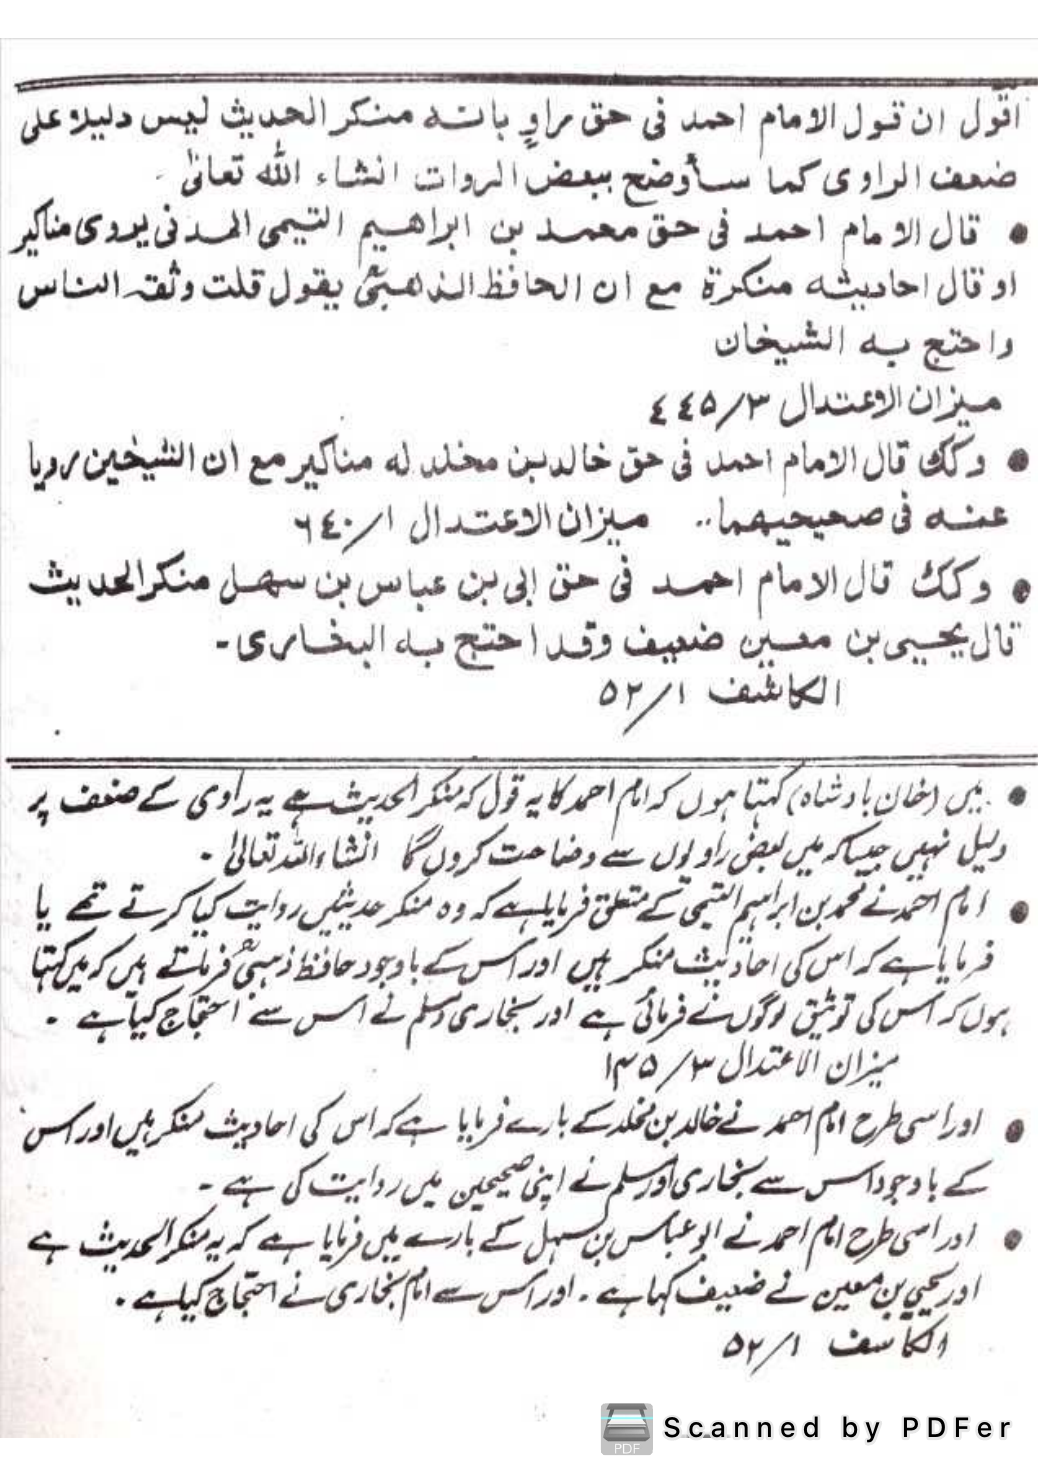 اقول ان قول الامام احمد فى حق راوٍ بانه منكر الحديث ليس دليلا على
ضعف الراوى كما سأوضح ببعض الروات انشاء الله تعالىٰ .
● قال الامام احمد فى حق محمد بن ابراهيم التيمى المدنى يروى مناكير
او قال احاديثه منكرة مع ان الحافظ الذهبىؒ يقول قلت وثقه الناس
واحتج به الشيخان
ميزان الاعتدال ٣/٤٤٥
● وكك قال الامام احمد فى حق خالد بن مخلد له مناكير مع ان الشيخين رويا
عنه فى صحيحيهما.. ميزان الاعتدال ١/٦٤٠
● وكك قال الامام احمد فى حق ابى بن عباس بن سهل منكر الحديث
قال يحيى بن معين ضعيف وقد احتج به البخارى -
الكاشف ١/٥٢
● میں (خان بادشاہ) کہتا ہوں کہ امام احمد کا یہ قول کہ منکر الحدیث ہے یہ راوی کے ضعف پر
دلیل نہیں جیسا کہ میں بعض راویوں سے وضاحت کروں گا انشاءاللہ تعالیٰ ۔
● امام احمدؒ نے محمد بن ابراہیم التیمی کے متعلق فرمایا ہے کہ وہ منکر حدیثیں روایت کیا کرتے تھے یا
فرمایا ہے کہ اس کی احادیث منکر ہیں اور اس کے باوجود حافظ ذہبیؒ فرماتے ہیں کہ میں کہتا
ہوں کہ اس کی توثیق لوگوں نے فرمائی ہے اور بخاری ومسلم نے اس سے احتجاج کیا ہے ۔
میزان الاعتدال ۳/۴۴۵
● اور اسی طرح امام احمد نے خالد بن مخلد کے بارے فرمایا ہے کہ اس کی احادیث منکر ہیں اور اس
کے باوجود اس سے بخاری اور مسلم نے اپنی صحیحین میں روایت کی ہے ۔
● اور اسی طرح امام احمد نے ابو عباس بن سہل کے بارے میں فرمایا ہے کہ یہ منکر الحدیث ہے
اور یحیی بن معین نے ضعیف کہا ہے ۔ اور اس سے امام بخاری نے احتجاج کیا ہے ۔
الکاشف ۱/۵۲
PDF Scanned by PDFer